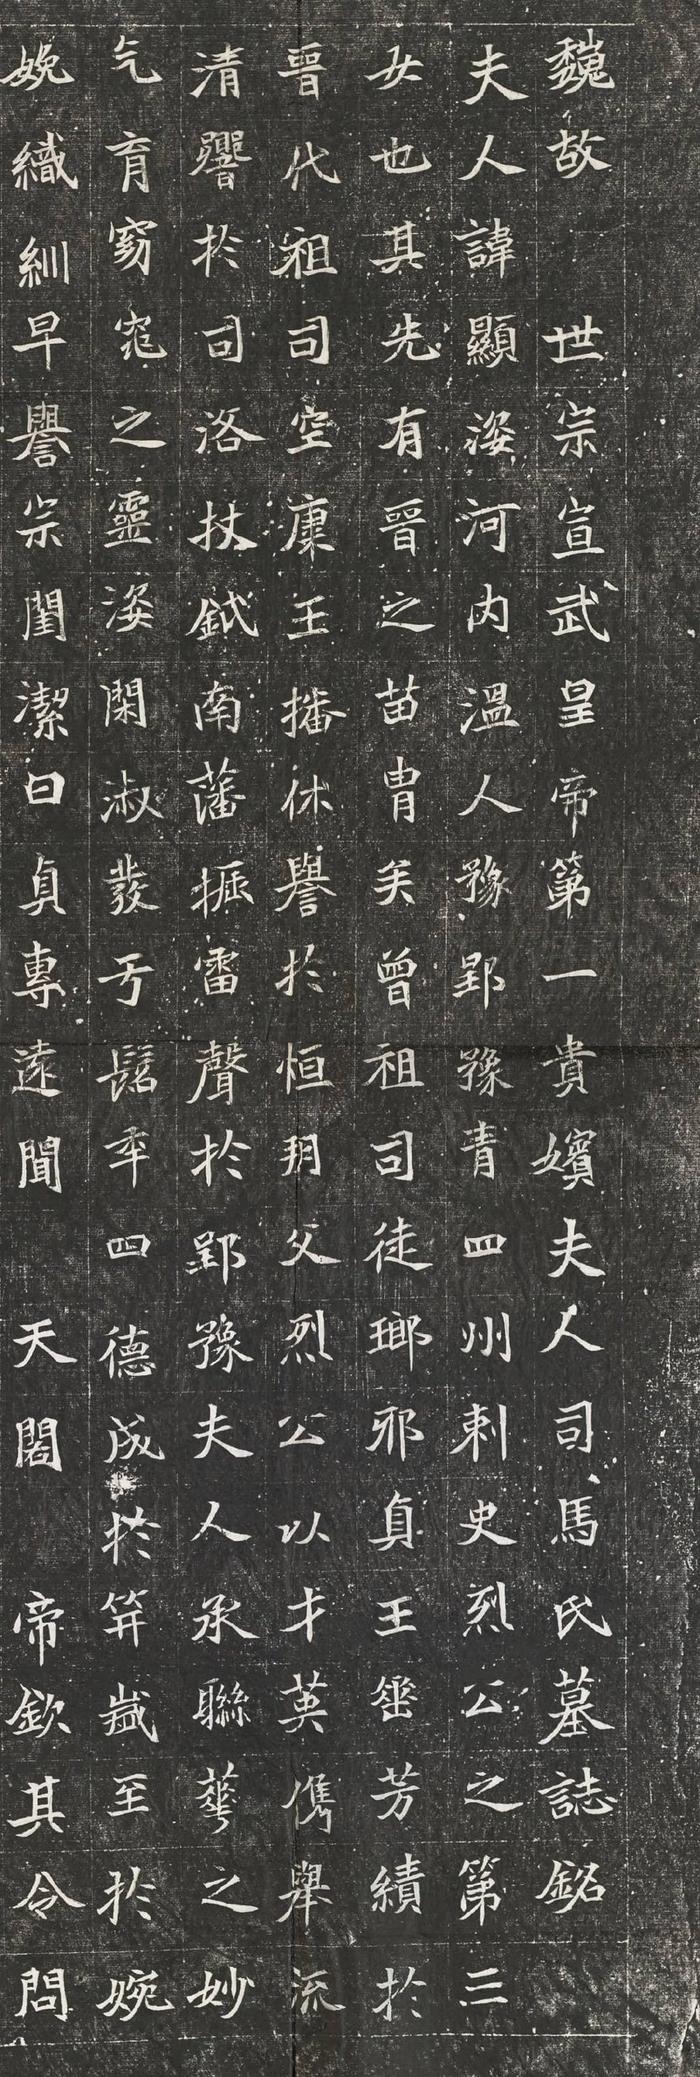 魏故世宗宣武皇帝第一貴嬪夫人司馬氏墓誌銘
夫人諱顯姿河內溫人豫郢豫青四州刺史烈公之第三
女也其先有晉之苗胄矣曾祖司徒瑯邪貞王垂芳績於
晉代祖司空康王播休譽於恒朔父烈公以才英儁舉流
清響於司洛杖鉞南藩振雷聲於郢豫夫人承聯華之妙
氣育窈窕之靈姿閑淑發于髫年四德成於笄歲至於婉
娩織紃早譽宗閨潔白貞專遠聞天閣帝欽其令問